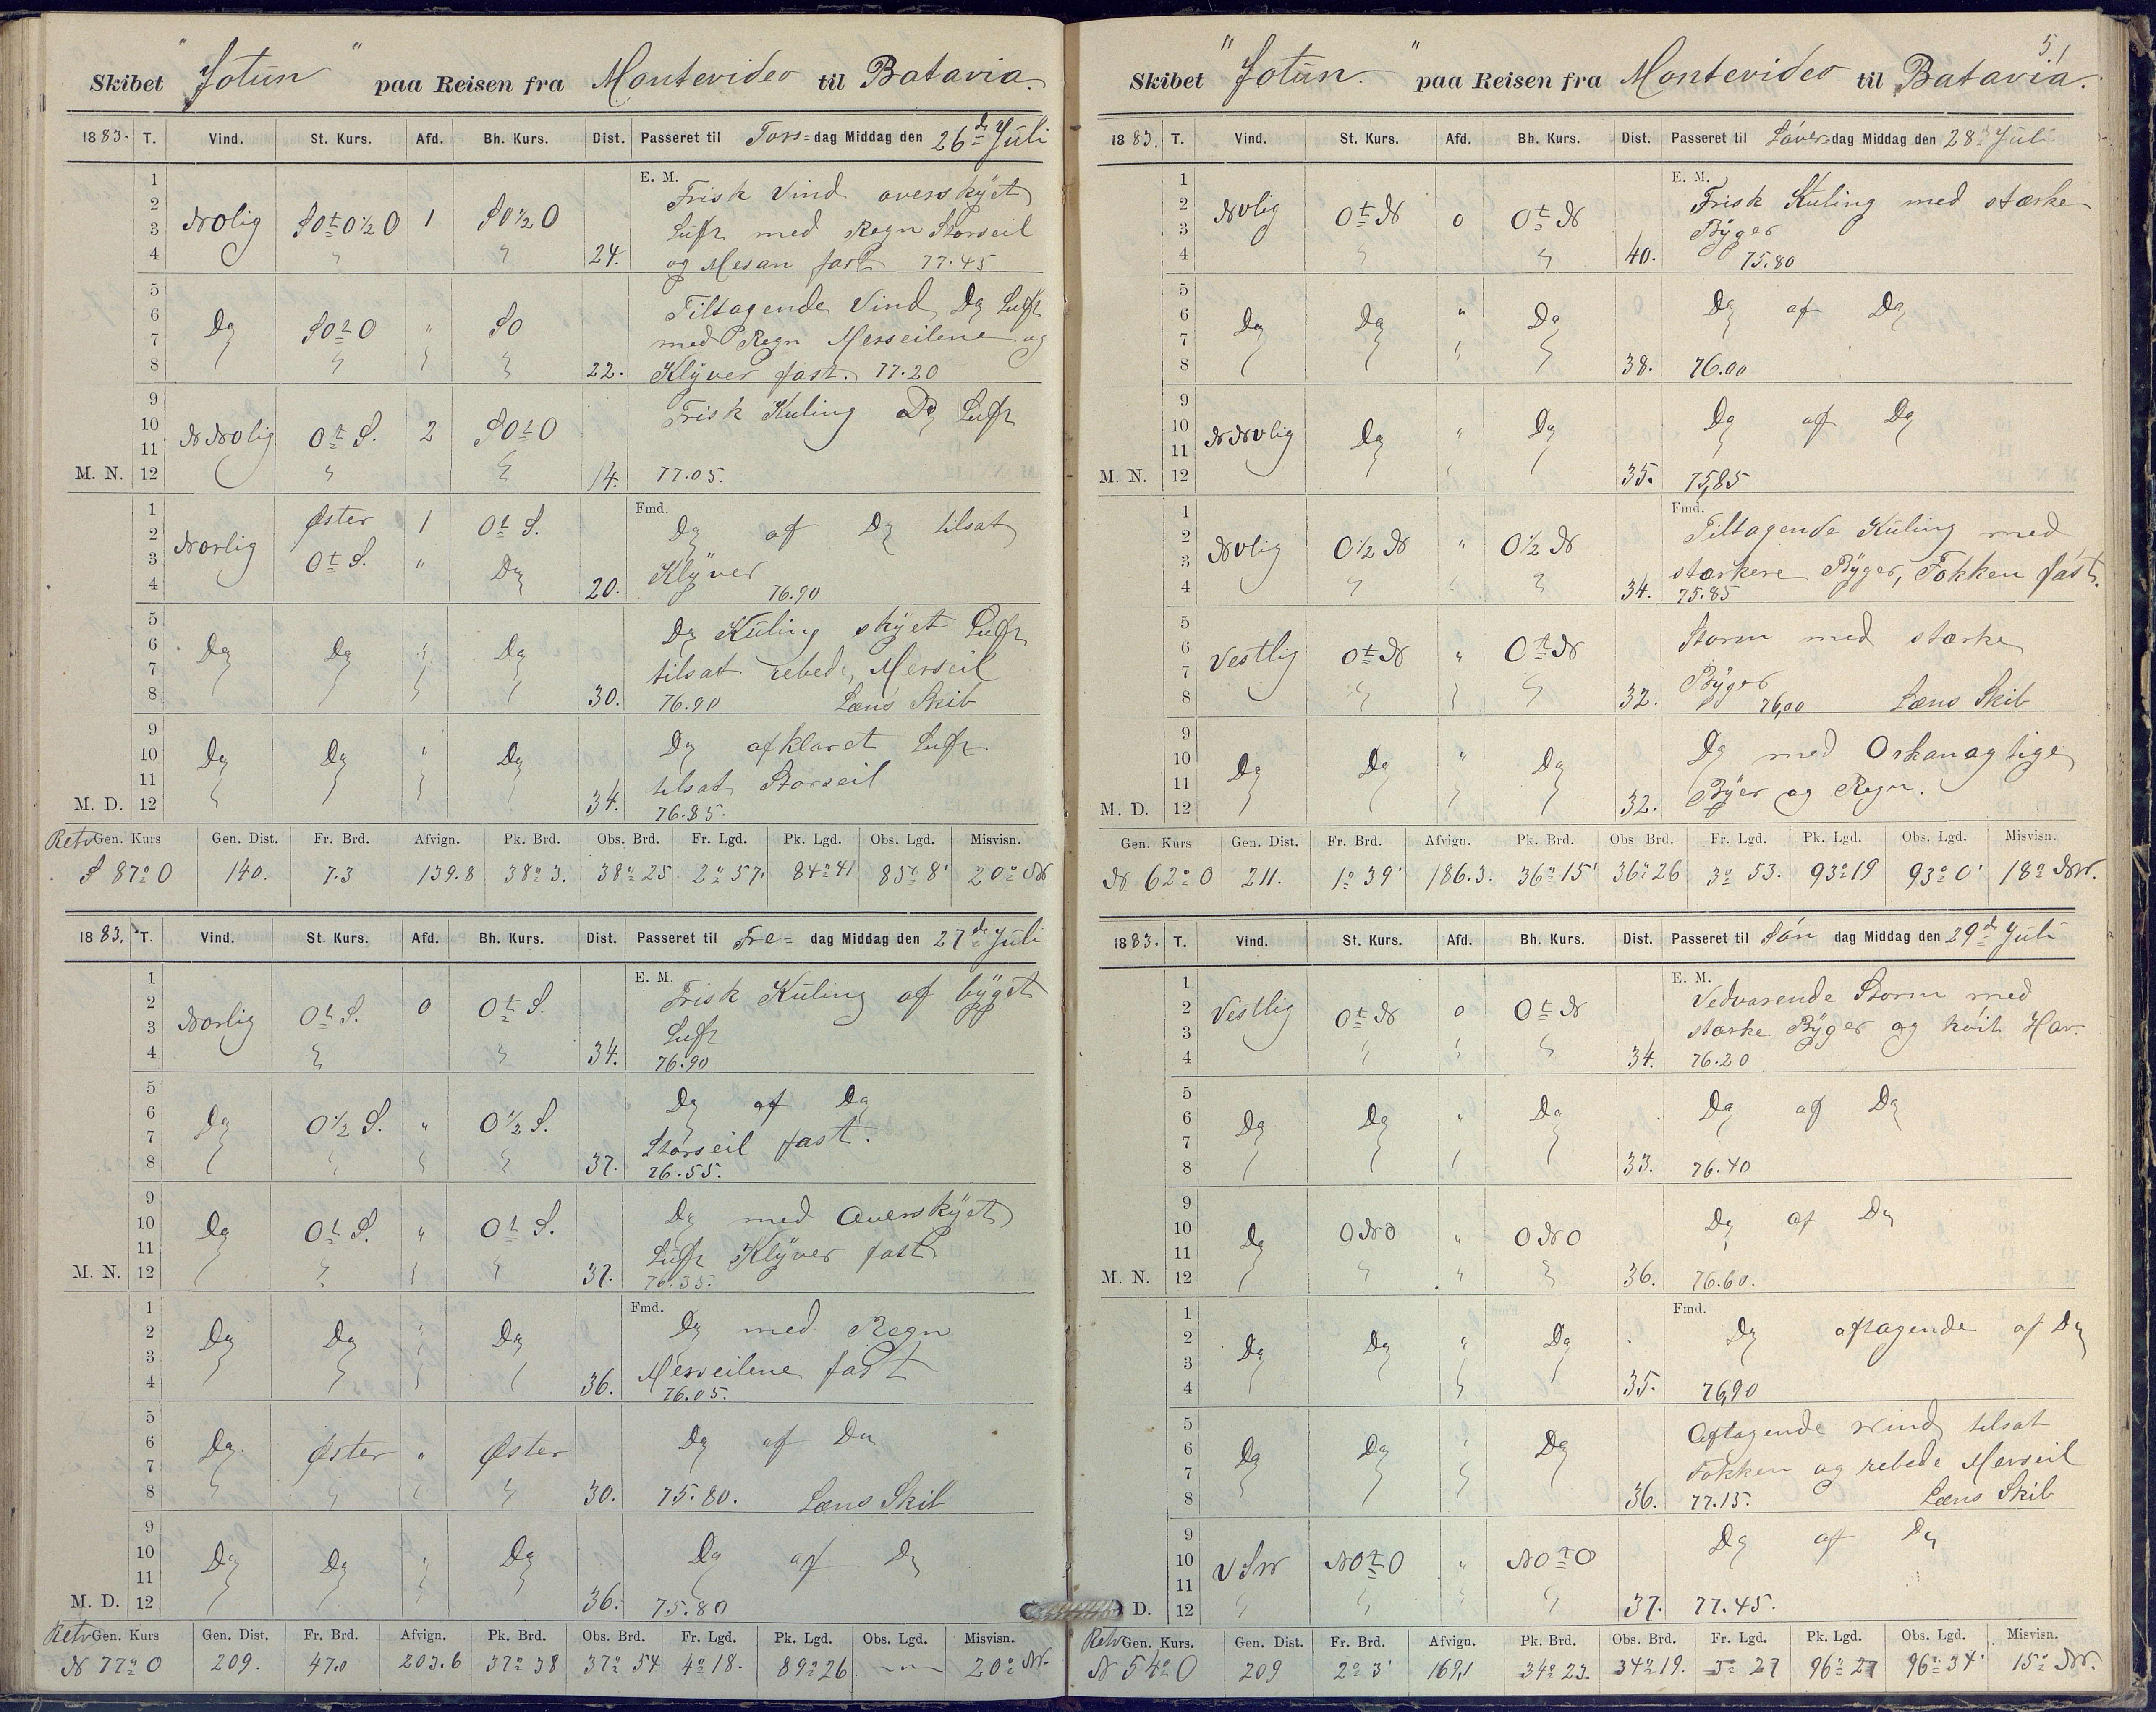 Skibet "Jotun" paa Reisen fra Montevideo til Batavia.
1883. T. Vind. St. Kurs. Afd. Bh. Kurs. Dist. Passeret til Tors=dag Middag den 26de Juli
E. M.
1 2 3 4 NOlig SOtO½O 1 SO½O 24. Frisk Vind overskyet
Luft med Regn Storseil
og Mesan fast 77.45
5 6 7 8 Do SOtO " SO 22. Tiltagende Vind Do Luft
med Regn Merseilene og
Klyver fast. 77.20
9 10 11 12 M. N. NNOlig Ot S. 2 SOtO 14. Frisk Kuling Do Luft
77.05.
Fmd.
1 2 3 4 Norlig Øster 1 Ot S. Do af Do tilsat
Ot S. " Do 20. Klyver
76.90
5 6 7 8 Do Do " Do 30. Do Kuling skyet Luft
tilsat rebede Merseil
76.90 Læns Skib
9 10 11 12 M. D. Do Do " Do 34. Do afklaret Luft
tilsat Storseil
76.85.
Retv Gen. Kurs Gen. Dist. Fr. Brd. Afvign. Pk. Brd. Obs. Brd. Fr. Lgd. Pk. Lgd. Obs. Lgd. Misvisn.
S 87° O 140. 7.3 139.8 38° 3. 38° 25 2° 57' 84° 41 85° 8' 20° NW
1883. T. Vind. St. Kurs. Afd. Bh. Kurs. Dist. Passeret til Fre= dag Middag den 27de Juli
E. M.
1 2 3 4 Norlig Ot S. 0 Ot S. 34. Frisk Kuling af byget
Luft
76.90
5 6 7 8 Do O½ S. " O½ S. 37. Do af Do
Storseil fast.
76.55.
9 10 11 12 M. N. Do Ot S. " Ot S. 37. Do med Overskyet
Luft Klyver fast
76.35.
Fmd.
1 2 3 4 Do Do " Do 36. Do med Regn
Merseilene fast
76.05.
5 6 7 8 Do Øster " Øster 30. Do af Do
75.80. Læns Skib
9 10 11 12 M. D. Do Do " Do 36. Do af Do
75.80
Retv Gen. Kurs Gen. Dist. Fr. Brd. Afvign. Pk. Brd. Obs. Brd. Fr. Lgd. Pk. Lgd. Obs. Lgd. Misvisn.
N 77° O 209. 47.0 203.6 37° 38 37° 54 4° 18. 89° 26 20° NW.
51
Skibet "Jotun." paa Reisen fra Montevideo til Batavia.
1883. T. Vind. St. Kurs. Afd. Bh. Kurs. Dist. Passeret til Løver=dag Middag den 28de Juli
E. M.
1 2 3 4 NVlig Ot N 0 Ot N 40. Frisk Kuling med stærke
Byger
75.80
5 6 7 8 Do Do " Do 38. Do af Do
76.00
9 10 11 12 M. N. NNVlig Do " Do 35. Do af Do
75,85
Fmd.
1 2 3 4 NVlig O½ N " O½ N 34. Tiltagende Kuling med
stærkere Byger, Fokken fast.
75.85
5 6 7 8 Vestlig Ot N " Ot N 32. Storm med stærke
Byger
76,00 Læns Skib
9 10 11 12 M. D. Do Do " Do 32. Do med Orkanagtige
Byer og Regn.
Gen. Kurs Gen. Dist. Fr. Brd. Afvign. Pk. Brd. Obs Brd. Fr. Lgd. Pk. Lgd. Obs. Lgd. Misvisn.
N 62° O 211. 1° 39' 186.3. 36° 15' 36° 26 3° 53. 93° 19 93° 0' 18° NW.
1883. T. Vind. St. Kurs. Afd. Bh. Kurs. Dist. Passeret til Søn dag Middag den 29de Juli
E. M.
1 2 3 4 Vestlig Ot N 0 Ot N 34. Vedvarende Storm med
stærke Byger og høit Hav.
76.20
5 6 7 8 Do Do " Do 33. Do af Do
76.40
9 10 11 12 M. N. Do ONO " ONO 36. Do af Do
76.60.
Fmd.
1 2 3 4 Do Do " Do 35. Do aftagende af Do
76,90
5 6 7 8 Do Do " Do 36. Aftagende Vind tilsat
Fokken og rebede Merseil
77.15. Læns Skib
9 10 11 12 D. VSW NOtO " NOtO 37. Do af Do
77.45.
Retv Gen. Kurs. Gen. Dist. Fr. Brd. Afvign. Pk. Brd. Obs. Brd. Fr. Lgd. Pk. Lgd. Obs. Lgd. Misvisn.
N 54° O 209 2° 3' 169,1 34° 23. 34° 19. 3° 27 96° 27 96° 34' 15° NW.